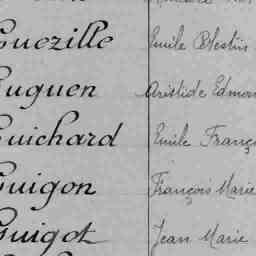 Guezille Emile Célestin
Guguen Aristide Edmon
Guichard Emile Franço
Guigon François Marie
Guigot Jean Marie